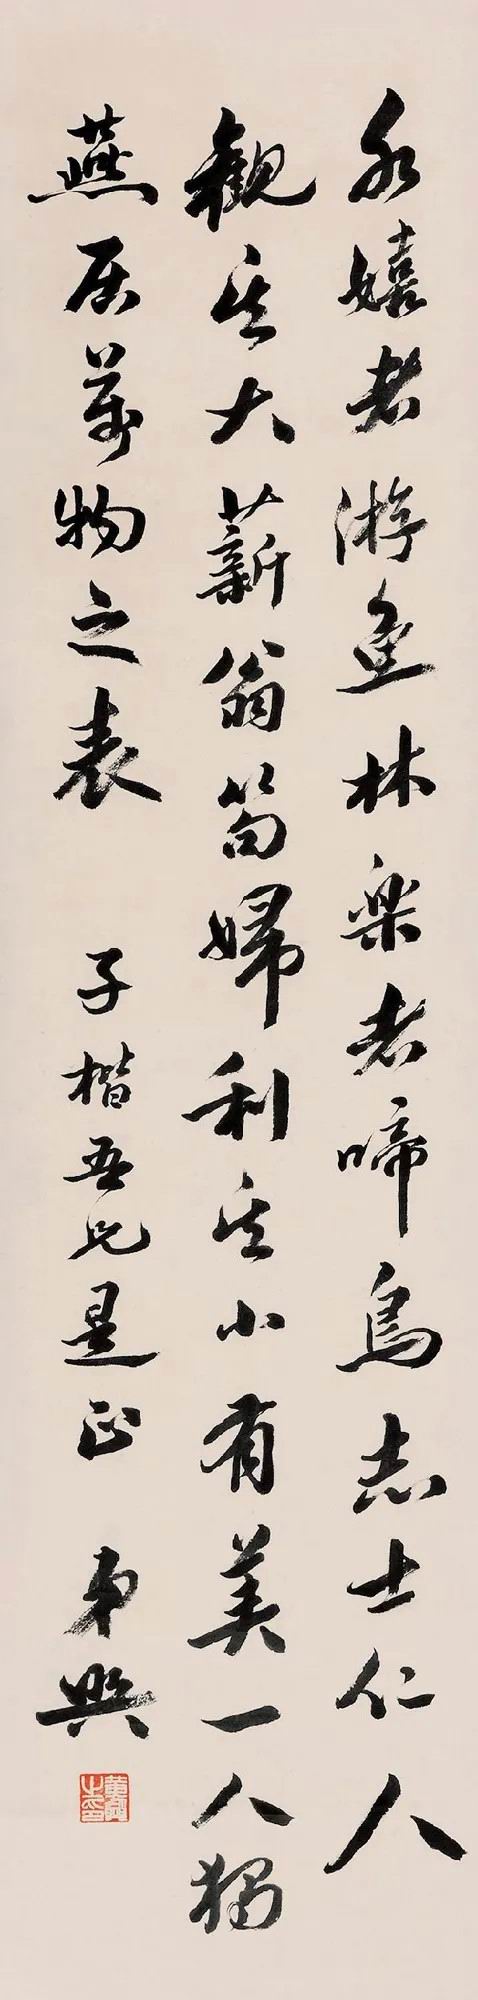 水嬉者游鱼林樂者啼鳥志士仁人
觀其大薪翁笱婦利其小有美一人獨
燕居萬物之表 子楷吾兄是正 弟興